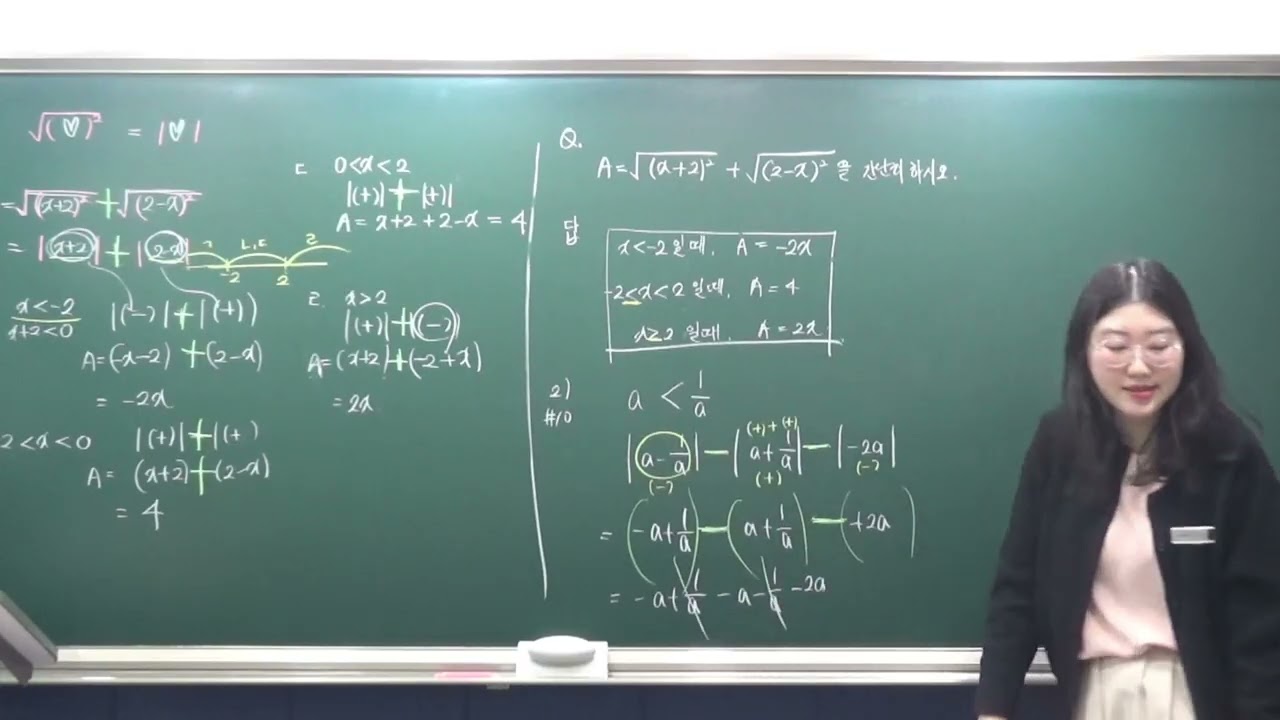 √(♡)² = |♡|
= √(x+2)² + √(2-x)²
= |x+2| + |2-x|
-2 2
x<-2
x+2<0
|(-)| + |(+)|
A=(-x-2) + (2-x)
= -2x
2<x<0 |(+)| + |(+)
A= (x+2)+(2-x)
= 4
ㄷ 0<x<2
|(+)| + |(+)|
A= x+2+2-x = 4
2. x>2
|(+)|+|(-)|
A=(x+2)+(-2+x)
= 2x
Q.
A=√(x+2)² + √(2-x)² 을 간단히 하시오.
답
x<-2 일때, A = -2x
-2≤x<2 일때, A = 4
x≥2 일때, A = 2x
2)
#10
a < 1/a
(+)+(+)
|a-1/a| - |a+1/a| - |-2a|
(-) (+) (-)
= (-a+1/a) - (a+1/a) - (+2a)
= -a+1/a -a-1/a -2a